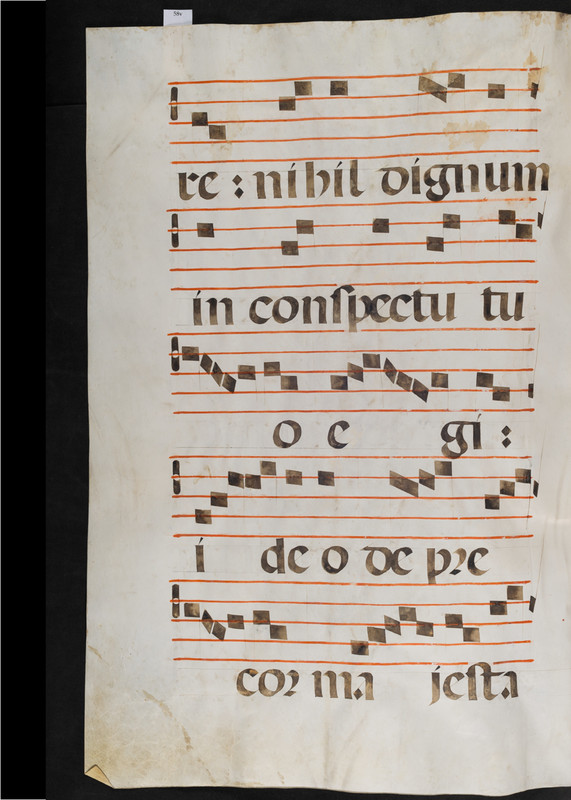 re : nihil dignum
in conſpectu tu
o e gi :
i de o de pre
cor ma jeſta